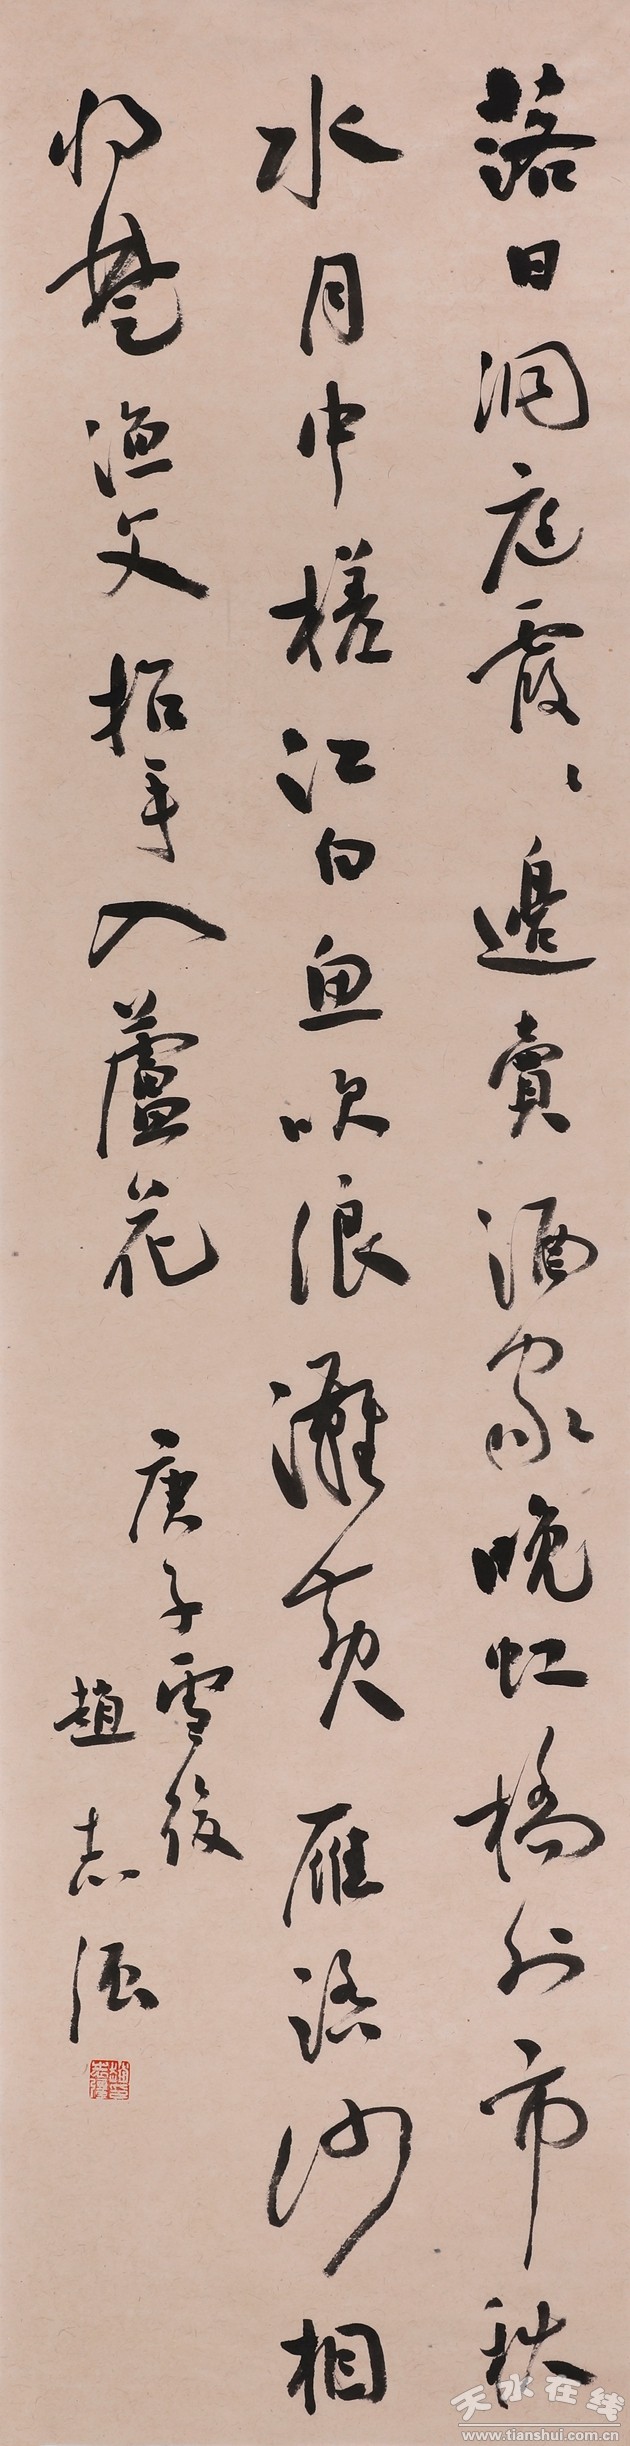 落日洞庭霞〻邊賣酒家晚虹橋外市秋
水月中槎江白魚吹浪灘黄雁踏沙相
将楚漁父招手入蘆花
庚子雪後
趙志强
天水在线
www.tianshui.com.cn